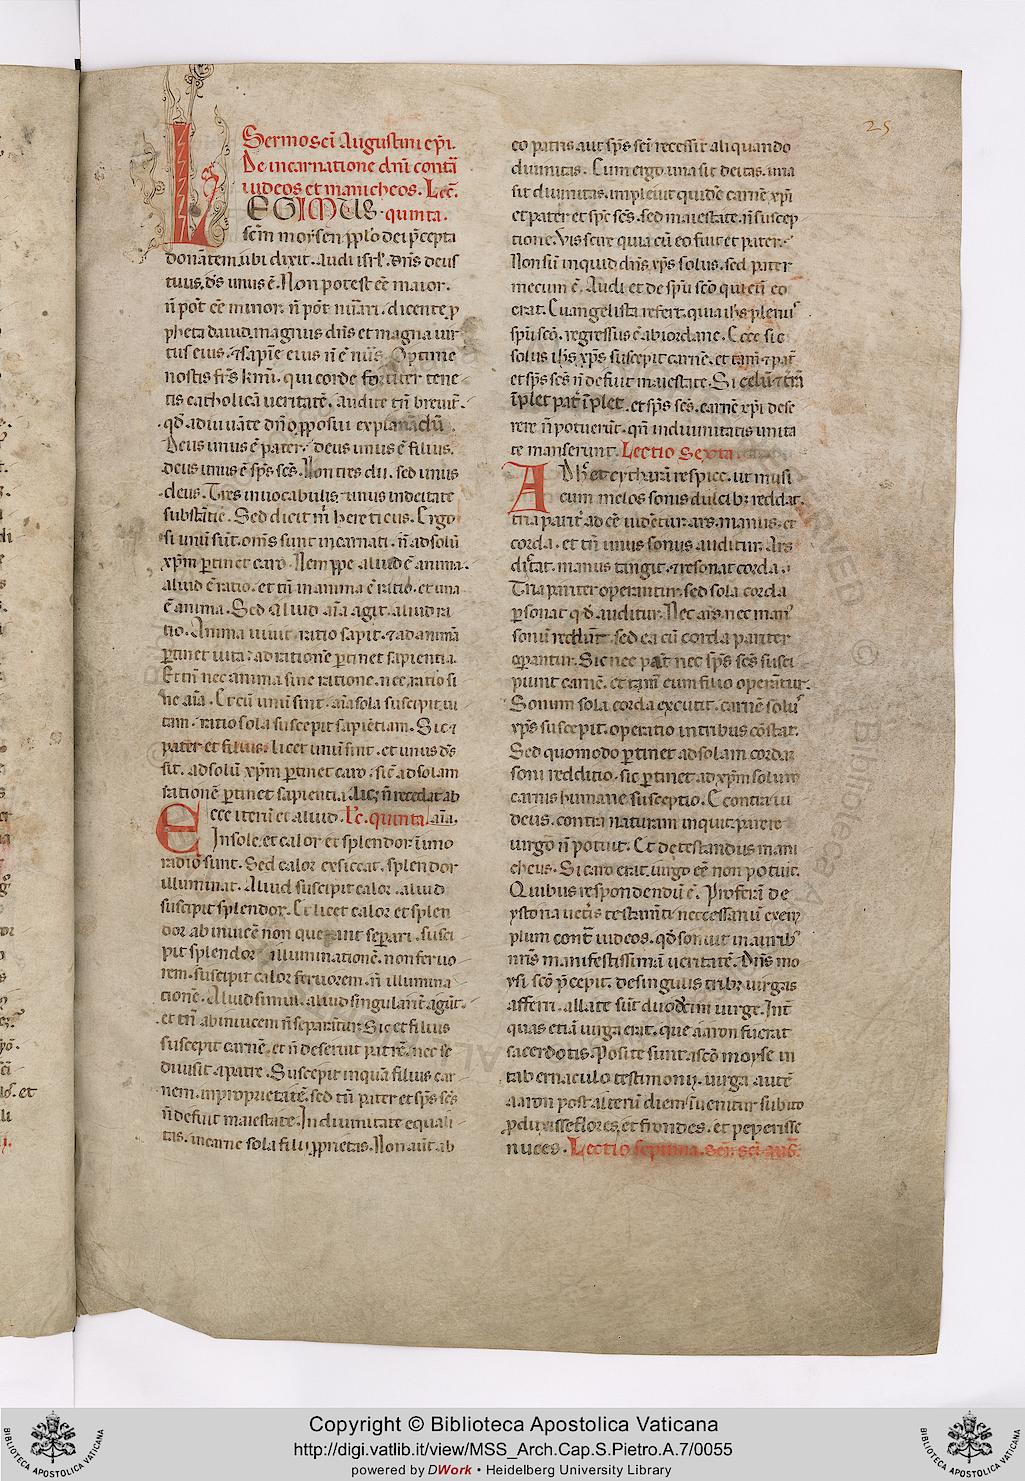 25
Sermo sci Augustini epi.
De incarnatione dni contã
iudeos et manicheos. Lec̃.
LEGIMUS quinta.
scm̃ moysen pplo dei p̃cepta
donãtem, ubi dixit. Audi isrl. dñs deus
tuus, ds̃ unus ẽ. Non potest eẽ maior.
ñ pot̃ eẽ minor. ñ pot̃ . dicente p
pheta dauid. magnus dñs et magna uir
tus eius. ⁊ sapiẽ eius ñ ẽ nũs. Optime
nostis frs̃ kmi. qui corde fortiter tene
tis catholicã ueritatẽ. Audite tñ breuit̃.
qd̃ adiuuãte dñõ pposui explanãdũ.
Deus unus ẽ pater. deus unus ẽ filius.
deus unus ẽ sps̃ scs̃. Non tres dii. sed unus
deus. Tres in uocabulis, unus in deitate
substãtie. Sed dicit m̃ hereticus. Ergo
si unũ sũt. oms̃ sunt incarnati. ñ ad solũ
xpm̃ ptinet caro. Nemppe aliud ẽ anima.
aliud ẽ ratio. et tñ in anima ẽ ratio. et una
ẽ anima. Sed aliud aĩa agit. aliud ra
tio. Anima uiuit ratio sapit. ⁊ ad animã
ptinet uita: ad rationẽ ptinet sapientia.
Et tñ nec anima sine ratione. nec ratio si
ne aĩa. Et cũ unũ sint. aĩa sola suscipit ui
tam. ratio sola suscepit sapiẽtiam. Sic ⁊
pater et filius. licet unũ sint. et unus ds̃
sit. ad solũ xpm̃ ptinet caro. sic̃ ad solam
rationẽ ptinet sapientia. licẽ ñ recedat ab
Ecce iterũ et aliud. Lc̃. quinta. aĩa.
In sole. et calor et splendor ĩ uno
radio sunt. Sed calor exsiccat. splendor
illuminat. Aliud suscipit calor. aliud
suscipit splendor. Et licet calor et splen
dor ab inuicẽ non queant sep̃ari. susci
pit splendor illuminationẽ. non feruo
rem. suscipit calor feruorem. ñ illumina
tionẽ. Aliud simul. aliud singularit̃ agũt.
et tñ ab inuicem ñ separãtur. Sic et filius
suscepit carnẽ. et ñ deseruit patrẽ. nec se
diuisit a patre. Suscepit inquã filius car
nem. in proprietatẽ. sed tñ pater et sps̃ scs̃
ñ defuit maiestate. In diuinitate equali
tas. in carne sola filii pprietas. Non aũt ab
eo patris aut sps̃ sci recessit aliquando
diuinitas. Cum ergo una sit deitas. una
sit diuinitas. impleuit quidẽ carnẽ xpi
et pater et sps̃ scs̃. sed maiestate. ñ suscep
tione. Vis scire quia cũ eo fuit et pater.
Non sũ inquid dñs xps̃ solus. sed pater
mecum ẽ. Audi et de spu scõ qui cũ eo
erat. Euangelista refert. quia ihs̃ plenus
spũ scõ. regressus ẽ ab iordane. Ecce sic
solus ihs̃ xps̃ suscepit carnẽ. et tam̃ ⁊ pat̃
et sps̃ scs̃ ñ defuit maiestate. Si celũ ⁊ trã
ĩplet pat̃ ĩplet. et sps̃ scs̃. carnẽ xpi dese
rere ñ potuerũt. qñ in diuinitatis unita
te manserunt. Lectio sexta.
Adh̃ et cytharã respice. ut musi
cum melos sonis dulcib; reddat.
tria parit̃ adeẽ uidẽtur. ars. manus. et
corda. et tñ unus sonus auditur. Ars
dic̃tat. manus tangit. ⁊ resonat corda.
Tria pariter operantur. sed sola corda
psonat qd̃ auditur. Nec ars. nec manus
sonũ reddũt. sed ea cũ corda pariter
opãntur. Sic nec pat̃ nec sps̃ scs̃ susci
piunt carnẽ. et tam̃ cum filio operãtur.
Sonum sola corda excutit. carnẽ solus
xps̃ suscepit. operatio in tribus cõstat.
Sed quomodo ptinet ad solam cordaz
soni redditio. sic ptinet ad xpm̃ solum
carnis humane susceptio. E contra iu
deus. contra naturam inquit parere
uirgo ñ potuit. Et detestandus mani
cheus. Si caro erit. uirgo eẽ non potuit.
Quibus respondendũ ẽ. Proferã de
ystoria uetis testamti neccessariũ exem
plum cont̃ iudeos. qd̃ sonuit in auribus
nris̃ manifestissimã ueritatẽ. Dñs mo
ysi scõ p̃cepit. de singulis tribz uirgas
afferri. allate sũt duodecim uirge. Int̃
quas etiã uirga erat. que aaron fuerat
sacerdotis. Posite sunt a scõ moyse in
tabernaculo testimonii. uirga autẽ
aaron post alterũ diem ĩuenitur subito
pduxisse flores, et frondes. et peperisse
nuces. Lectio septima. serm̃. sci aug̃.
Copyright © Biblioteca Apostolica Vaticana
http://digi.vatlib.it/view/MSS_Arch.Cap.S.Pietro.A.7/0055
powered by DWork • Heidelberg University Library
BIBLIOTECA APOSTOLICA VATICANA
BIBLIOTECA APOSTOLICA VATICANA